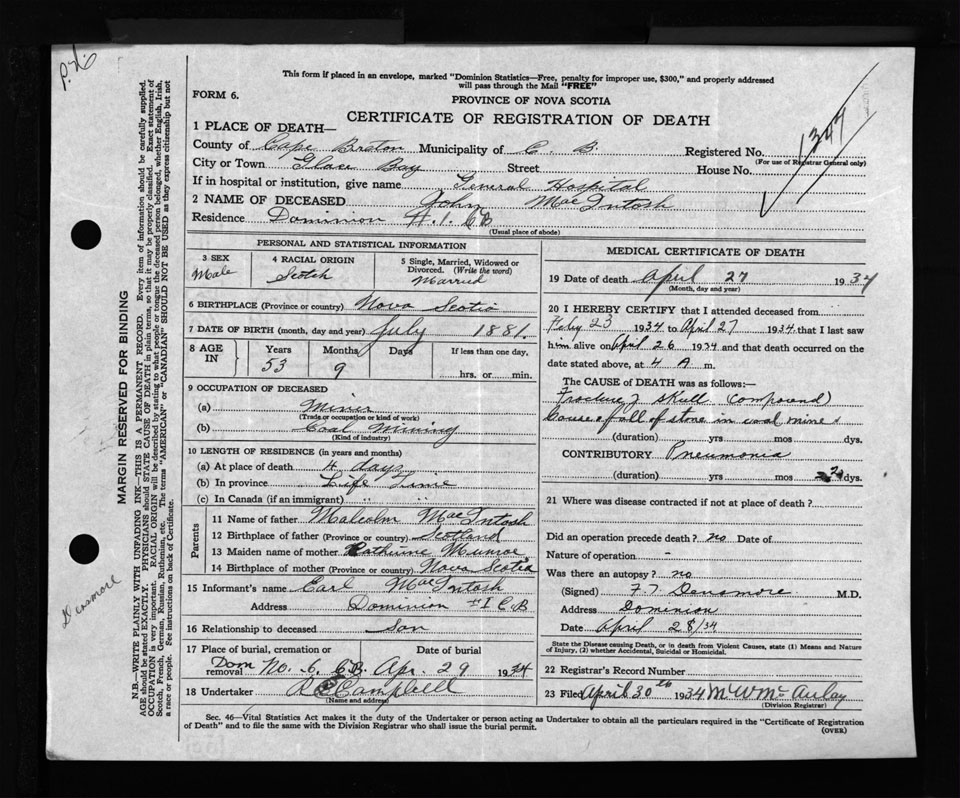 This form if placed in an envelope, marked "Dominion Statistics—Free, penalty for improper use, $300," and properly addressed
will pass through the Mail "FREE"
FORM 6.
PROVINCE OF NOVA SCOTIA
CERTIFICATE OF REGISTRATION OF DEATH
1347
1 PLACE OF DEATH—
County of Cape Breton Municipality of C. B. Registered No.
(For use of Registrar General only)
City or Town Glace Bay Street House No.
If in hospital or institution, give name General Hospital
2 NAME OF DECEASED John MacIntosh
Residence Dominion #1. CB
(Usual place of abode)
PERSONAL AND STATISTICAL INFORMATION
3 SEX Male
4 RACIAL ORIGIN Scotch
5 Single, Married, Widowed or Divorced. (Write the word) Married
6 BIRTHPLACE (Province or country) Nova Scotia
7 DATE OF BIRTH (month, day and year) July 1881.
8 AGE IN Years 53 Months 9 Days If less than one day, hrs. or min.
9 OCCUPATION OF DECEASED
(a) Miner
(Trade or occupation or kind of work)
(b) Coal Mining
(Kind of industry)
10 LENGTH OF RESIDENCE (in years and months)
(a) At place of death 4 days
(b) In province Life Time
(c) In Canada (if an immigrant) " "
Parents
11 Name of father Malcolm MacIntosh
12 Birthplace of father (Province or country) Scotland
13 Maiden name of mother Katherine Munroe
14 Birthplace of mother (Province or country) Nova Scotia
15 Informant's name Earl MacIntosh
Address Dominion #1 C.B
16 Relationship to deceased Son
17 Place of burial, cremation or removal Dom No. 6, C.B. Date of burial Apr. 29 1934
18 Undertaker Campbell
(Name and address)
MEDICAL CERTIFICATE OF DEATH
19 Date of death April 27 1934
(Month, day and year)
20 I HEREBY CERTIFY that I attended deceased from
Feby 23 1934 to April 27 1934 that I last saw
him alive on April 26 1934 and that death occurred on the
date stated above, at 4 A m.
The CAUSE of DEATH was as follows:—
Fracture of skull (compound)
Cause fall of stone in coal mine
(duration) yrs mos dys.
CONTRIBUTORY Pneumonia
(duration) yrs mos 2 dys.
21 Where was disease contracted if not at place of death?
Did an operation precede death? no Date of
Nature of operation -
Was there an autopsy? no
(Signed) F. T. Densmore M.D.
Address Dominion
Date April 28/34
State the Disease causing Death, or in death from Violent Causes, state (1) Means and Nature
of Injury, (2) whether Accidental, Suicidal or Homicidal.
22 Registrar's Record Number
23 Filed April 30th 1934 McAulay
(Division Registrar)
Sec. 46—Vital Statistics Act makes it the duty of the Undertaker or person acting as Undertaker to obtain all the particulars required in the "Certificate of Registration
of Death" and to file the same with the Division Registrar who shall issue the burial permit.
(OVER)
MARGIN RESERVED FOR BINDING
N.B.—WRITE PLAINLY WITH UNFADING INK—THIS IS A PERMANENT RECORD. Every item of information should be carefully supplied.
AGE should be stated EXACTLY. PHYSICIANS should STATE CAUSE OF DEATH in plain terms, so that it may be properly classified. Exact statement of
OCCUPATION is very important. RACIAL ORIGIN will be described by stating to what people or tongue the deceased person belonged, whether English, Irish,
Scotch, French, German, Russian, Ruthenian, etc. The terms "AMERICAN" or "CANADIAN" SHOULD NOT BE USED as they express citizenship but not
a race or people. See instructions on back of Certificate.
Densmore